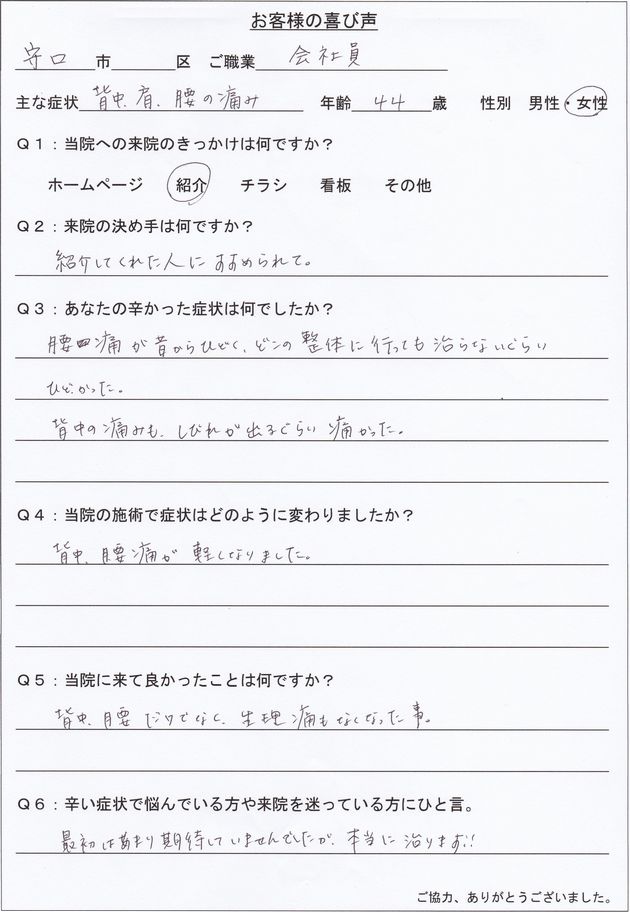 お客様の喜び声
守口 市 区 ご職業 会社員
主な症状 背中、肩、腰の痛み 年齢 44 歳 性別 男性・女性
Q1:当院への来院のきっかけは何ですか?
ホームページ 紹介 チラシ 看板 その他
Q2:来院の決め手は何ですか?
紹介してくれた人にすすめられて。
Q3:あなたの辛かった症状は何でしたか?
腰痛が昔からひどく、どこの整体に行っても治らないぐらい
ひどかった。
背中の痛みも、しびれが出るぐらい痛かった。
Q4:当院の施術で症状はどのように変わりましたか?
背中、腰痛が軽くなりました。
Q5:当院に来て良かったことは何ですか?
背中、腰だけでなく、生理痛もなくなった事。
Q6:辛い症状で悩んでいる方や来院を迷っている方にひと言。
最初はあまり期待していませんでしたが、本当に治ります!!
ご協力、ありがとうございました。